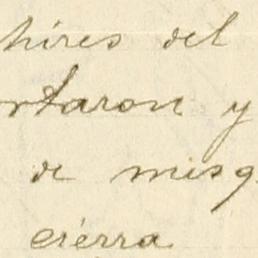 hires del
rtaron y
de misq
erérra